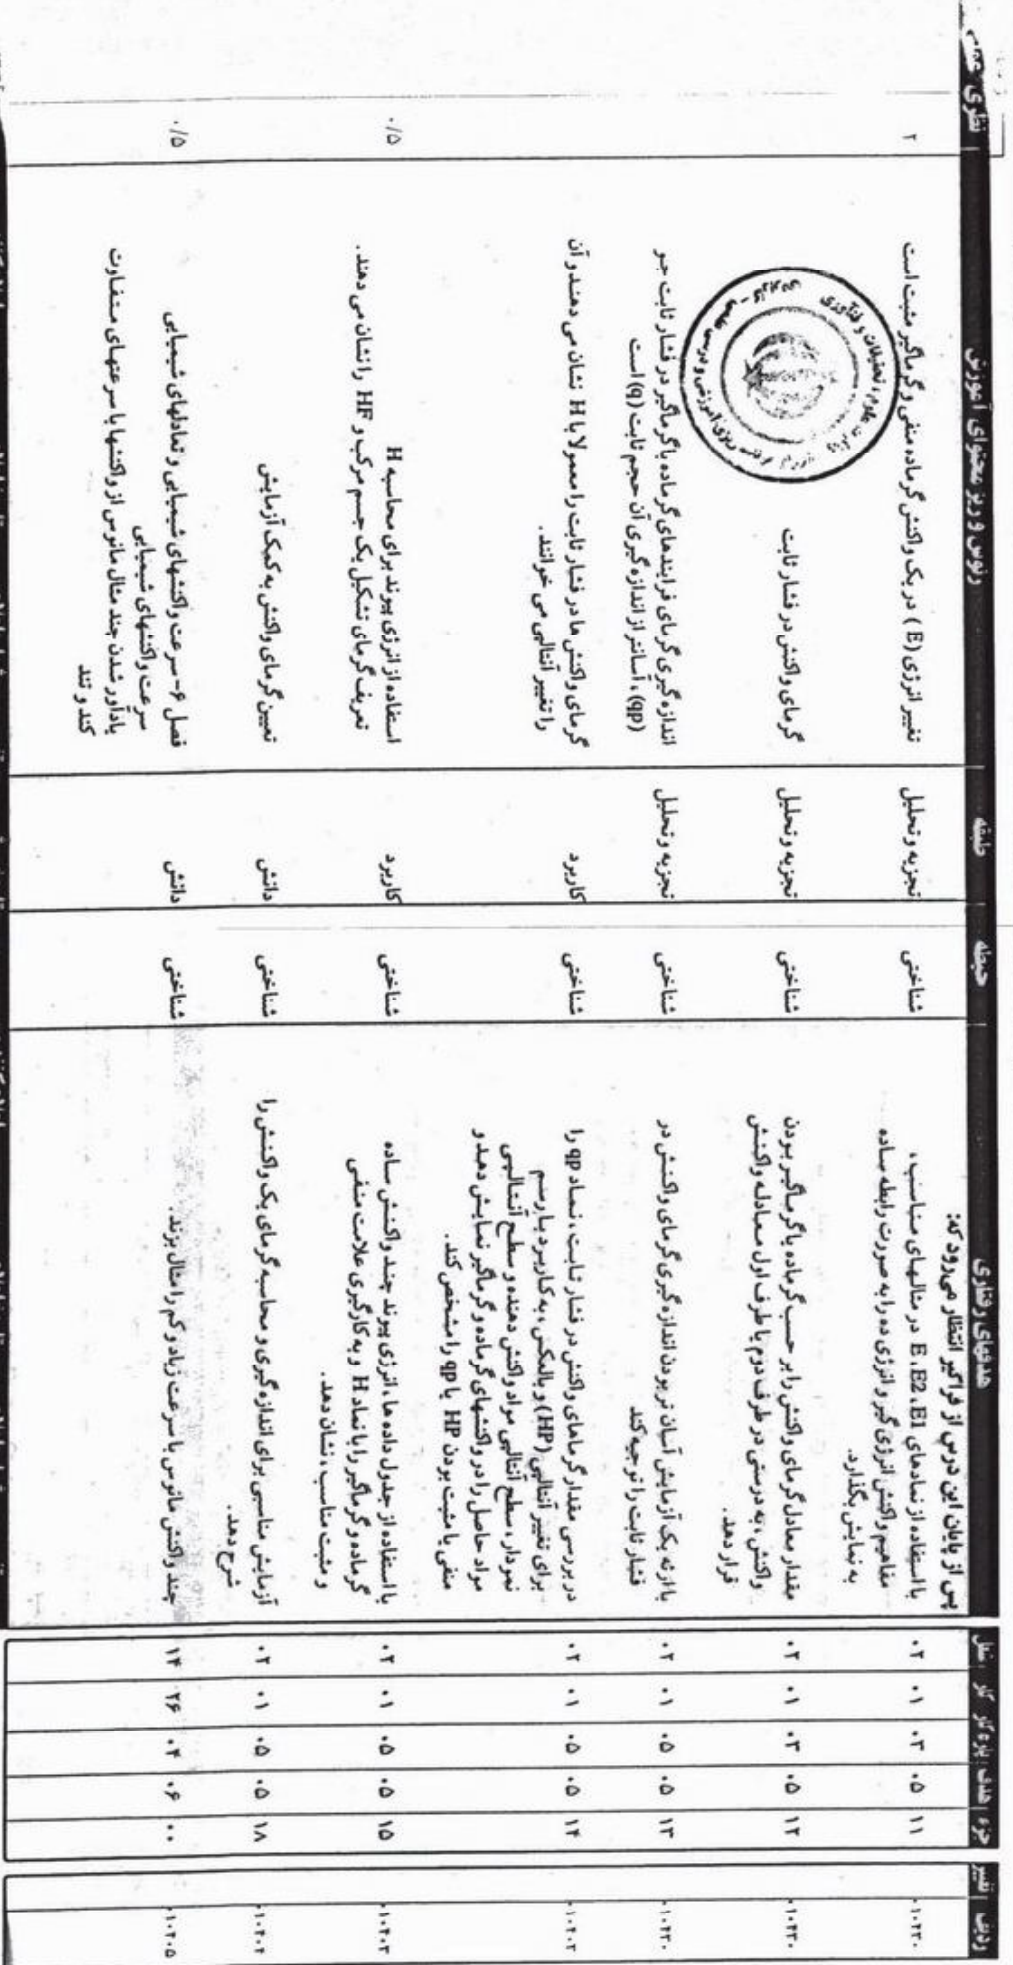 ردیف | تغییر | جزء | هدف | پاره کار | کار | شغل | هدفهای رفتاری | حیطه | طبقه | رئوس و ریز محتوای آموزش | نظری عملی
پس از پایان این درس از فراگیر انتظار می‌رود که:
۰۱۰۴۳۰ ۱۱ ۰۵ ۰۳ ۰۱ ۰۲
با استفاده از نمادهای E، E2، E1 در مثالهای مناسب،
مفاهیم واکنش انرژی گیر و انرژی ده را به صورت رابطه ساده
به نمایش بگذارد.
شناختی
تجزیه و تحلیل
تغییر انرژی (E) در یک واکنش گرماده منفی و گرماگیر مثبت است
۲
۰۱۰۴۳۰ ۱۲ ۰۵ ۰۳ ۰۱ ۰۲
مقدار معادل گرمای واکنش را بر حسب گرماده یا گرماگیر بودن
واکنش، به درستی در طرف دوم یا طرف اول معادله واکنش
قرار دهد.
شناختی
تجزیه و تحلیل
گرمای واکنش در فشار ثابت
۰۱۰۴۳۰ ۱۳ ۰۵ ۰۵ ۰۱ ۰۲
با ارئه یک آزمایش آسان تر بودن اندازه گیری گرمای واکنش در
فشار ثابت را توجیه کند
شناختی
تجزیه و تحلیل
اندازه گیری گرمای فرایندهای گرماده یا گرماگیر در فشار ثابت جو
(qp)، آسانتر از اندازه گیری آن حجم ثابت (q) است
۰۱۰۴۰۳ ۱۴ ۰۵ ۰۵ ۰۱ ۰۲
در بررسی مقدار گرماهای واکنش در فشار ثابت، نماد qp را
برای تغییر آنتالپی (HP) و بالعکس، به کار ببرد با رسم
نمودار، سطح آنتالپی مواد واکنش دهنده و سطح آنتالپی
مواد حاصل را در واکنشهای گرماده و گرماگیر نمایش دهد و
منفی یا مثبت بودن HP یا qp را مشخص کند.
شناختی
کاربرد
گرمای واکنش ها در فشار ثابت را معمولا با H نشان می دهند و آن
را تغییر آنتالپی می خوانند.
۰۱۰۴۰۳ ۱۵ ۰۵ ۰۵ ۰۱ ۰۲
با استفاده از جدول داده ها، انرژی پیوند چند واکنش ساده
گرماده و گرماگیر را با نماد H و به کارگیری علامت منفی
و مثبت مناسب، نشان دهد.
شناختی
کاربرد
استفاده از انرژی پیوند برای محاسبه H
تعریف گرمای تشکیل یک جسم مرکب و HF را نشان می دهند.
۰/۵
۰۱۰۴۰۴ ۱۸ ۰۵ ۰۵ ۰۱ ۰۲
آزمایش مناسبی برای اندازه گیری و محاسبه گرمای یک واکنش را
شرح دهد.
شناختی
دانش
تعیین گرمای واکنش به کمک آزمایش
۰۱۰۴۰۵ ۰۰ ۰۶ ۰۴ ۲۶ ۱۴
چند واکنش مانوس با سرعت زیاد و کم را مثال بزند.
شناختی
دانش
فصل ۶- سرعت واکنشهای شیمیایی و تعادلهای شیمیایی
سرعت واکنشهای شیمیایی
یادآور شدن چند مثال مانوس از واکنشها با سرعتهای متفاوت
کند و تند
۰/۵